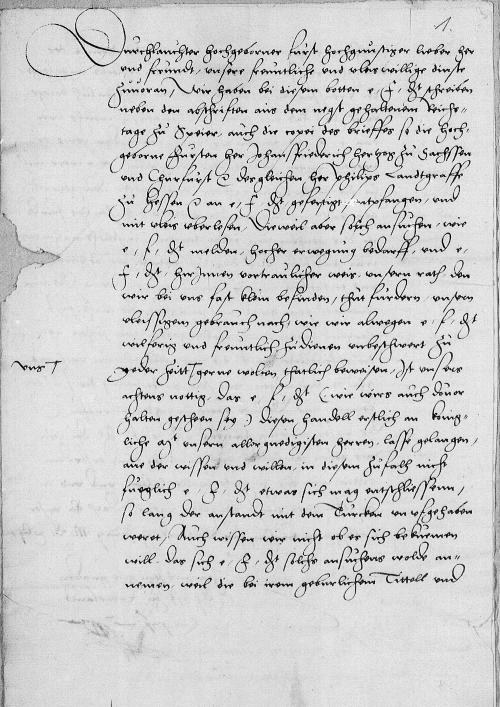 1.
Durchlauchter hochgeborner furst hochgunstiger lieber her
und freundt, unsere freuntliche und vleis willige dinste
zuuoran, Wir haben bei diesem botten e. f. dt schreiben
neben den abschriften aus dem negst gehaltenem Reichs-
tage zu Speier, auch die copei des brieffes so die hoch-
geborne Fursten her Johansfriederich hertzog zu Sachssen
und Churfurst & desgleichen her Philips Landtgraffe
zu Hessen & an e. f. dt gefertigt, entpfangen, und
mit vleis uberlesen. Dieweil aber solch ansuchen, wie
e. f. dt melden, hocher erwegung bedarff, und e.
f. dt hirInnen vertraulicher weis, unsern rath, den
wir bei uns fast klein befinden, thut furdern, unsern
vleissigem gebrauch nach, wie wir alwegen e. f. dt
wilferig und freuntlich zudienen unbeschwert zu
uns
yeder zeitt gerne wolten thatlich beweisen, Ist unsers
achtens nottig, das e. f. dt (wie wirs auch dovor
halten gescheen sey) diesen handell erstlich an konig-
liche mt unsern allergnedigisten herren, lasse gelangen,
ane der wissen und willen, in diesem zufalh nicht
fueglich e. f. dt etwas sich mag entschliessenn,
so lang der anstandt mit dem Turcken unufgehaben
weret, Auch wissen wir nicht ob es sich bekuemen
will, das sich e. f. dt solchs ansuchens wolde an-
nemen, weil die bei irem geburlichem Tittell und